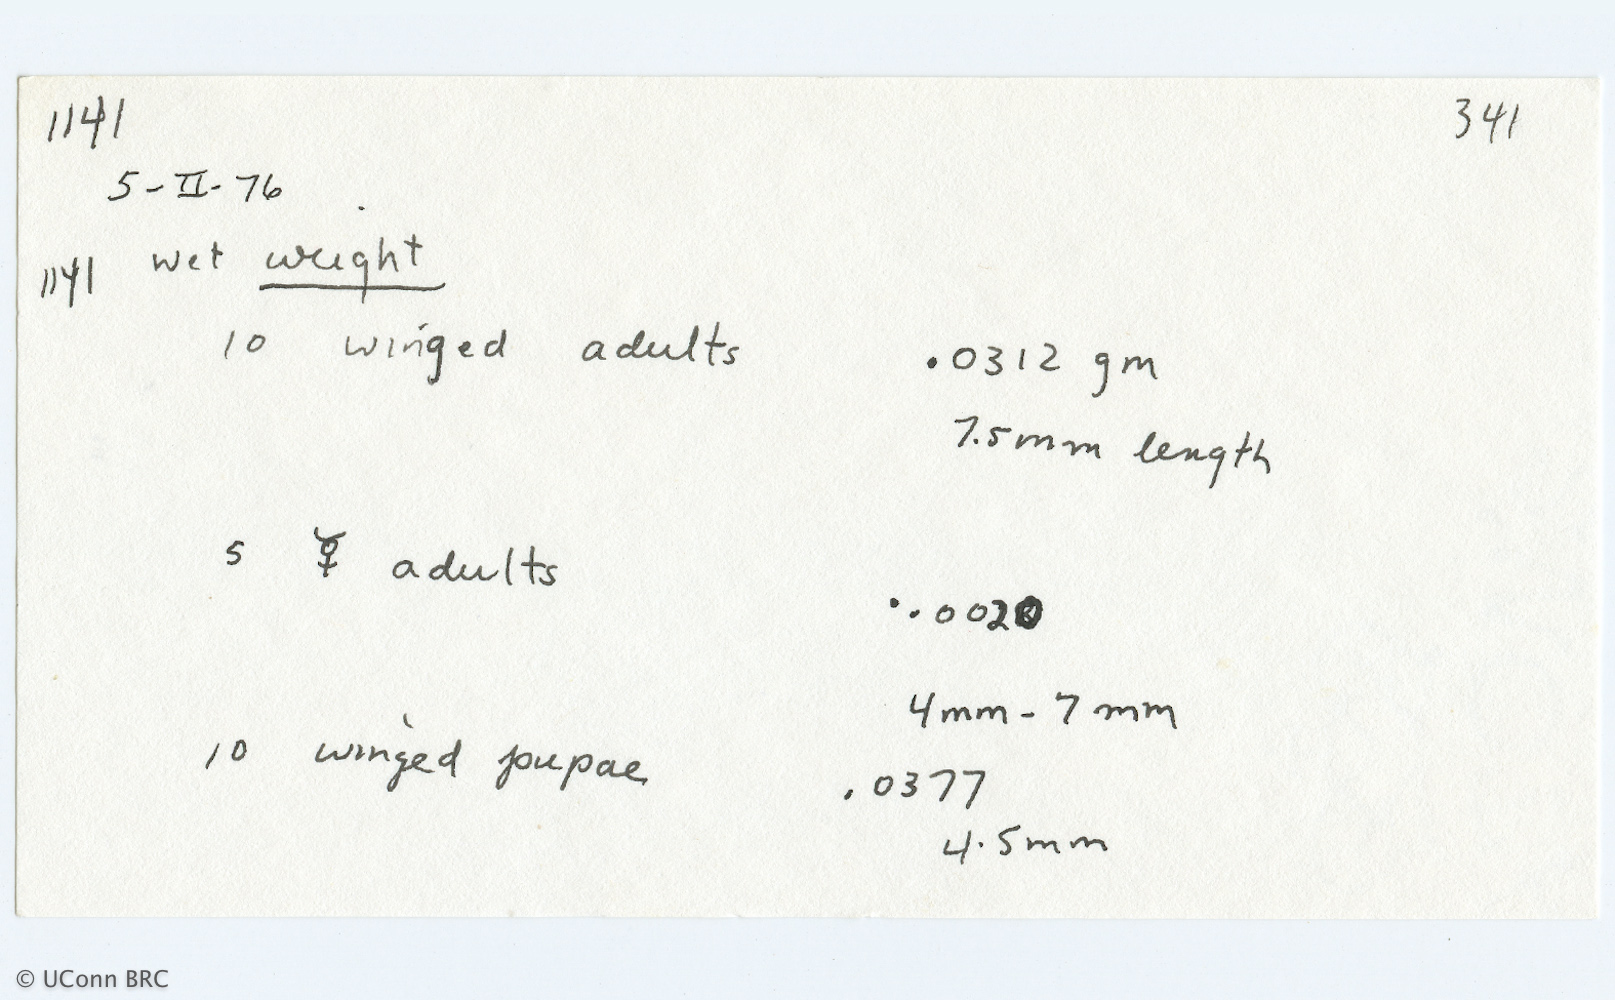 1141 341
5-II-76
1141 wet weight
10 winged adults .0312 gm
7.5mm length
5 ☿ adults
.0020
4mm-7mm
10 winged pupae .0377
4.5mm
© UConn BRC